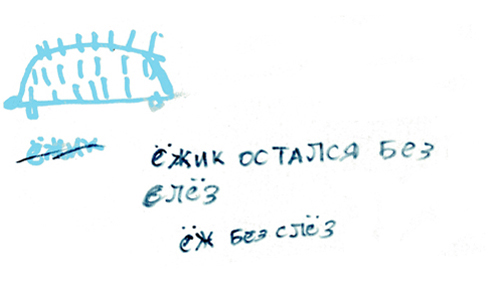 ёжик
ёжик остался без
слёз
ёж без слёз